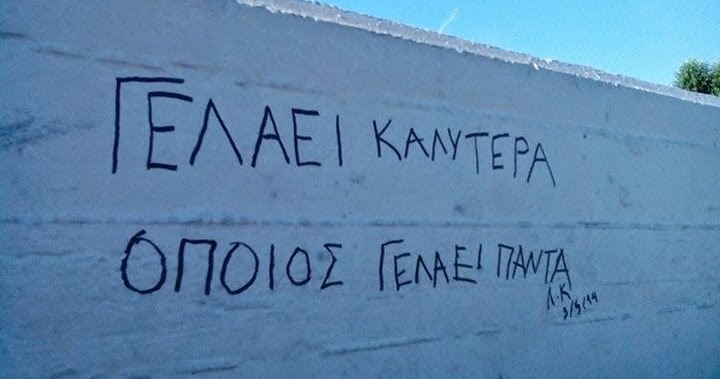 ΓΕΛΑΕΙ ΚΑΛΥΤΕΡΑ
ΟΠΟΙΟΣ ΓΕΛΑΕΙ ΠΑΝΤΑ
Λ.Κ